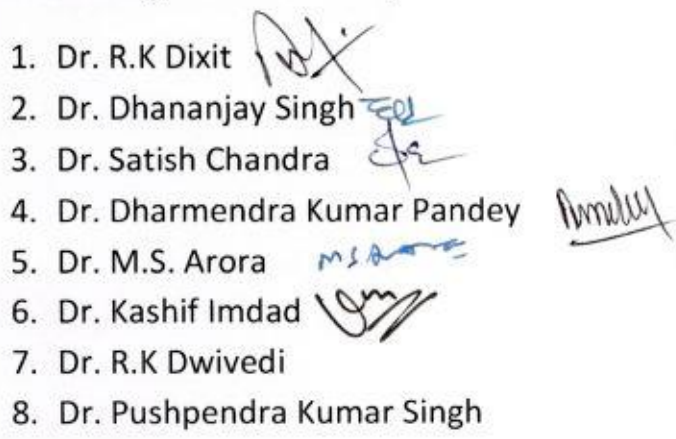 1. Dr. R.K Dixit
2. Dr. Dhananjay Singh
3. Dr. Satish Chandra
4. Dr. Dharmendra Kumar Pandey
5. Dr. M.S. Arora M S Arora
6. Dr. Kashif Imdad
7. Dr. R.K Dwivedi
8. Dr. Pushpendra Kumar Singh